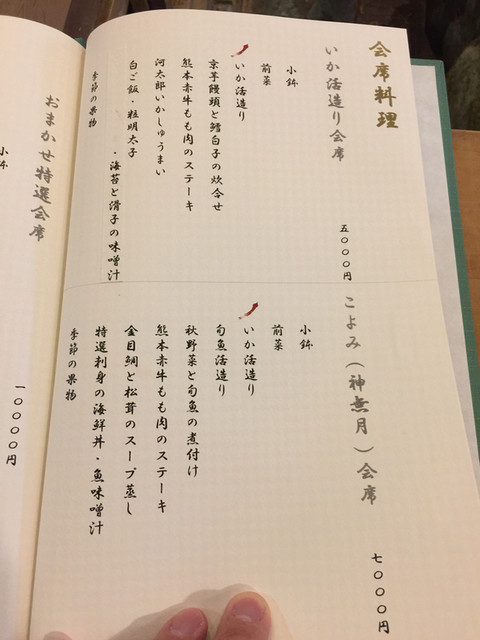 会席料理
いか活造り会席
五〇〇〇円
小鉢
前菜
いか活造り
京芋饅頭と鱈白子の炊合せ
熊本赤牛もも肉のステーキ
河太郎いかしゅうまい
白ご飯・粒明太子
・海苔と滑子の味噌汁
季節の果物
こよみ(神無月)会席
七〇〇〇円
小鉢
前菜
いか活造り
旬魚活造り
秋野菜と旬魚の煮付け
熊本赤牛もも肉のステーキ
金目鯛と松茸のスープ蒸し
特選刺身の海鮮丼・魚味噌汁
季節の果物
おまかせ特選会席
一〇〇〇〇円
小鉢